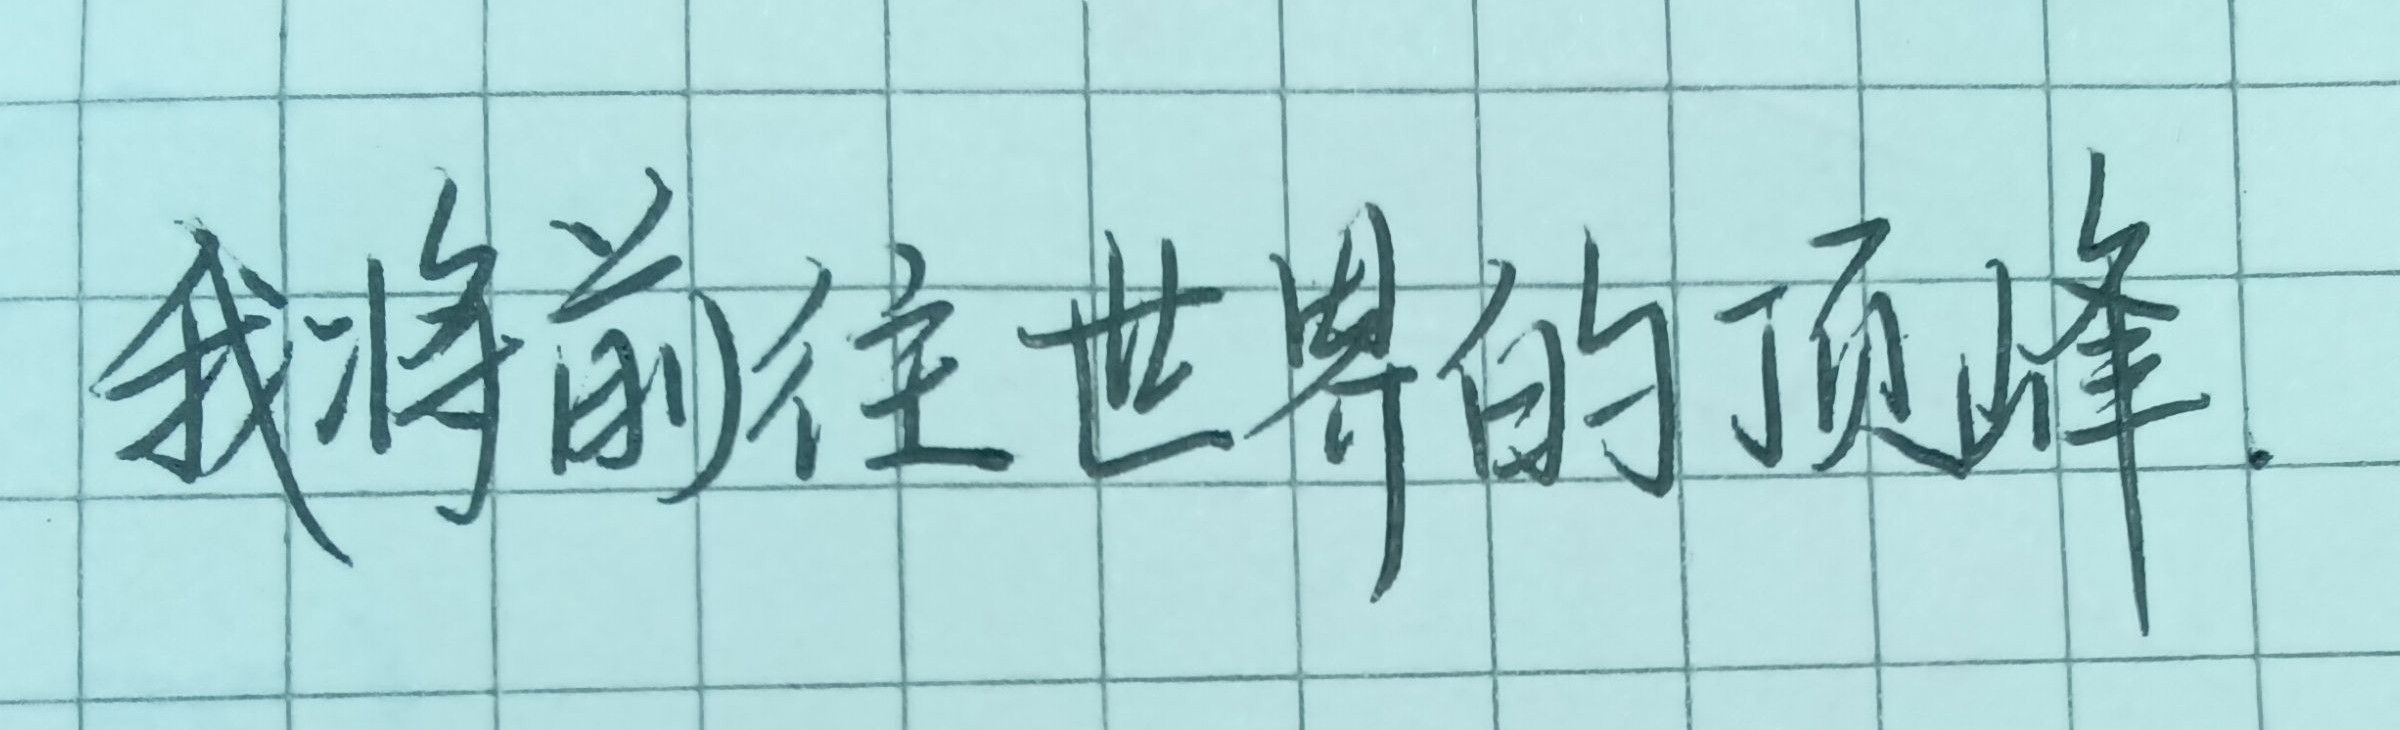 我将前往世界的顶峰.